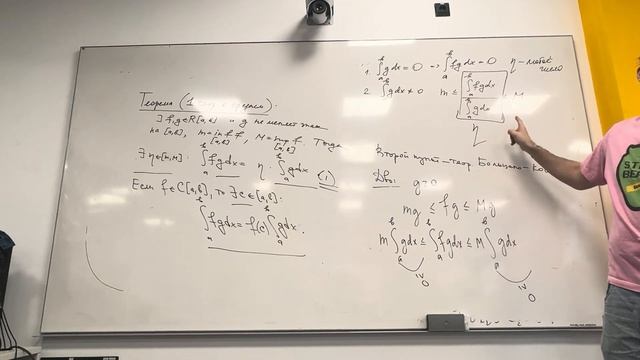 Теорема (
∃ f,g∈R[a,b] и g не меняет знак
на [a,b], m=inf f, M=sup f. Тогда
[a,b] [a,b]
∃ η∈[m,M]: ∫ₐᵇ fgdx = η ∫ₐᵇ gdx (1)
Если f∈C[a,b], то ∃c∈[a,b]:
∫ₐᵇ fgdx = f(c)∫ₐᵇ gdx.
1. ∫ₐᵇ gdx = 0 → ∫ₐᵇ fgdx = 0 η – любое
число
2. ∫ₐᵇ gdx ≠ 0 m ≤ ∫ₐᵇ fgdx / ∫ₐᵇ gdx ≤ M
η
Второй пункт – теор Больцано-
Д-во: g≥0
mg ≤ fg ≤ Mg
m∫ₐᵇ gdx ≤ ∫ₐᵇ fgdx ≤ M∫ₐᵇ gdx
≥ 0 ≥ 0